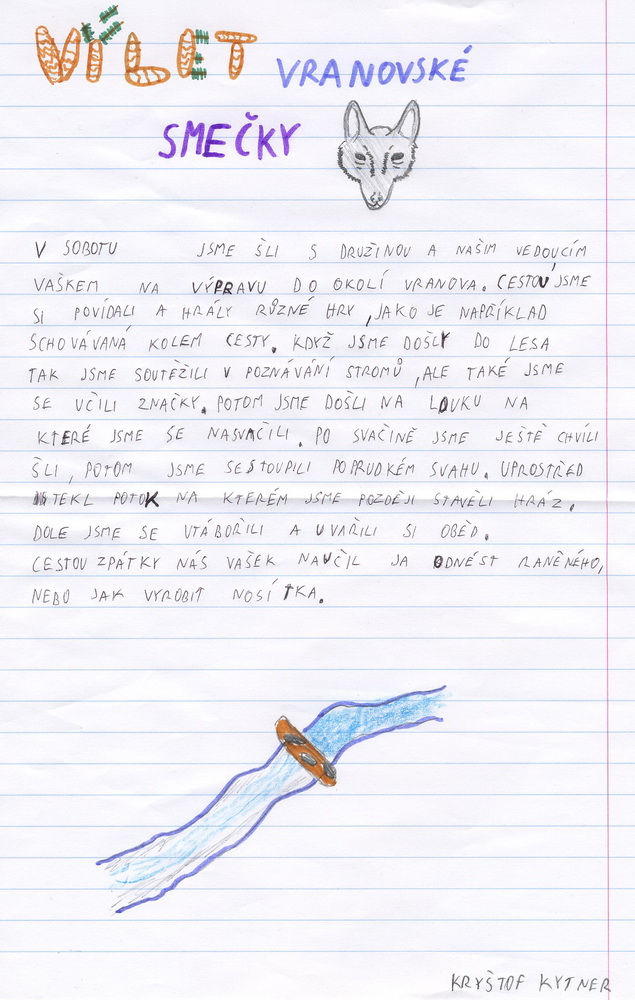 VÍLET VRANOVSKÉ
SMEČKY
V SOBOTU JSME ŠLI S DRUŽINOU A NAŠIM VEDOUCÍM
VAŠKEM NA VÝPRAVU DO OKOLÍ VRANOVA. CESTOU JSME
SI POVÍDALI A HRÁLY RŮZNÉ HRY, JAKO JE NAPŘÍKLAD
SCHOVÁVANÁ KOLEM CESTY. KDYŽ JSME DOŠLY DO LESA
TAK JSME SOUTĚŽILI V POZNÁVÁNÍ STROMŮ, ALE TAKÉ JSME
SE UČILI ZNAČKY. POTOM JSME DOŠLI NA LOUKU NA
KTERÉ JSME SE NASVAČILI. PO SVAČINĚ JSME JEŠTĚ CHVÍLI
ŠLI, POTOM JSME SESTOUPILI POPRUDKÉM SVAHU. UPROSTŘED
TEKL POTOK NA KTERÉM JSME POZDĚJI STAVĚLI HRÁZ.
DOLE JSME SE UTÁBOŘILI A UVAŘILI SI OBĚD.
CESTOU ZPÁTKY NÁS VAŠEK NAUČIL JA ODNÉST RANĚNÉHO,
NEBO JAK VYROBIT NOSÍTKA.
KRYŠTOF KYTNER